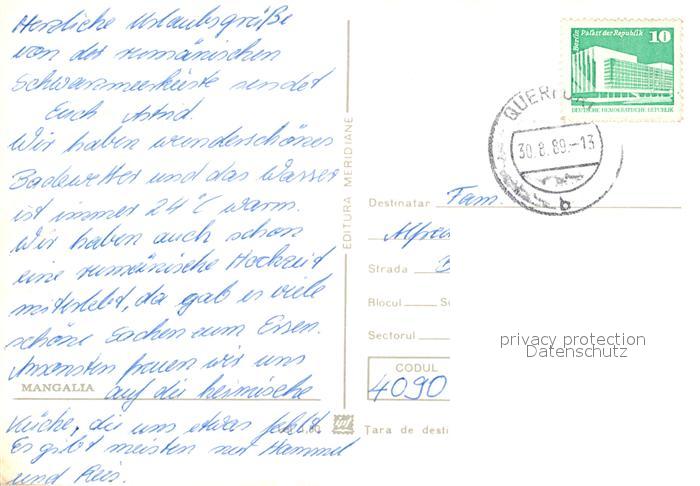 Herzliche Urlaubsgrüße
von der rumänischen
Schwarzmeerküste sendet
Euch Astrid.
Wir haben wunderschönes
Badewetter und das Wasser
ist immer 24°C warm.
Wir haben auch schon
eine rumänische Hochzeit
miterlebt, da gab es viele
schöne Sachen zum Essen.
Ansonsten freuen wir uns
MANGALIA auf die heimische
Küche, die uns etwas fehlt.
Es gibt meisten nur Hammel
und Reis.
EDITURA MERIDIANE
Berlin Palast der Republik 10
DEUTSCHE DEMOKRATISCHE REPUBLIK
QUERFURT
30.8.89.-13
b
Destinatar Fam.
Alfred
Strada B
Blocul
Sectorul
privacy protection
Datenschutz
CODUL
4090
Țara de desti